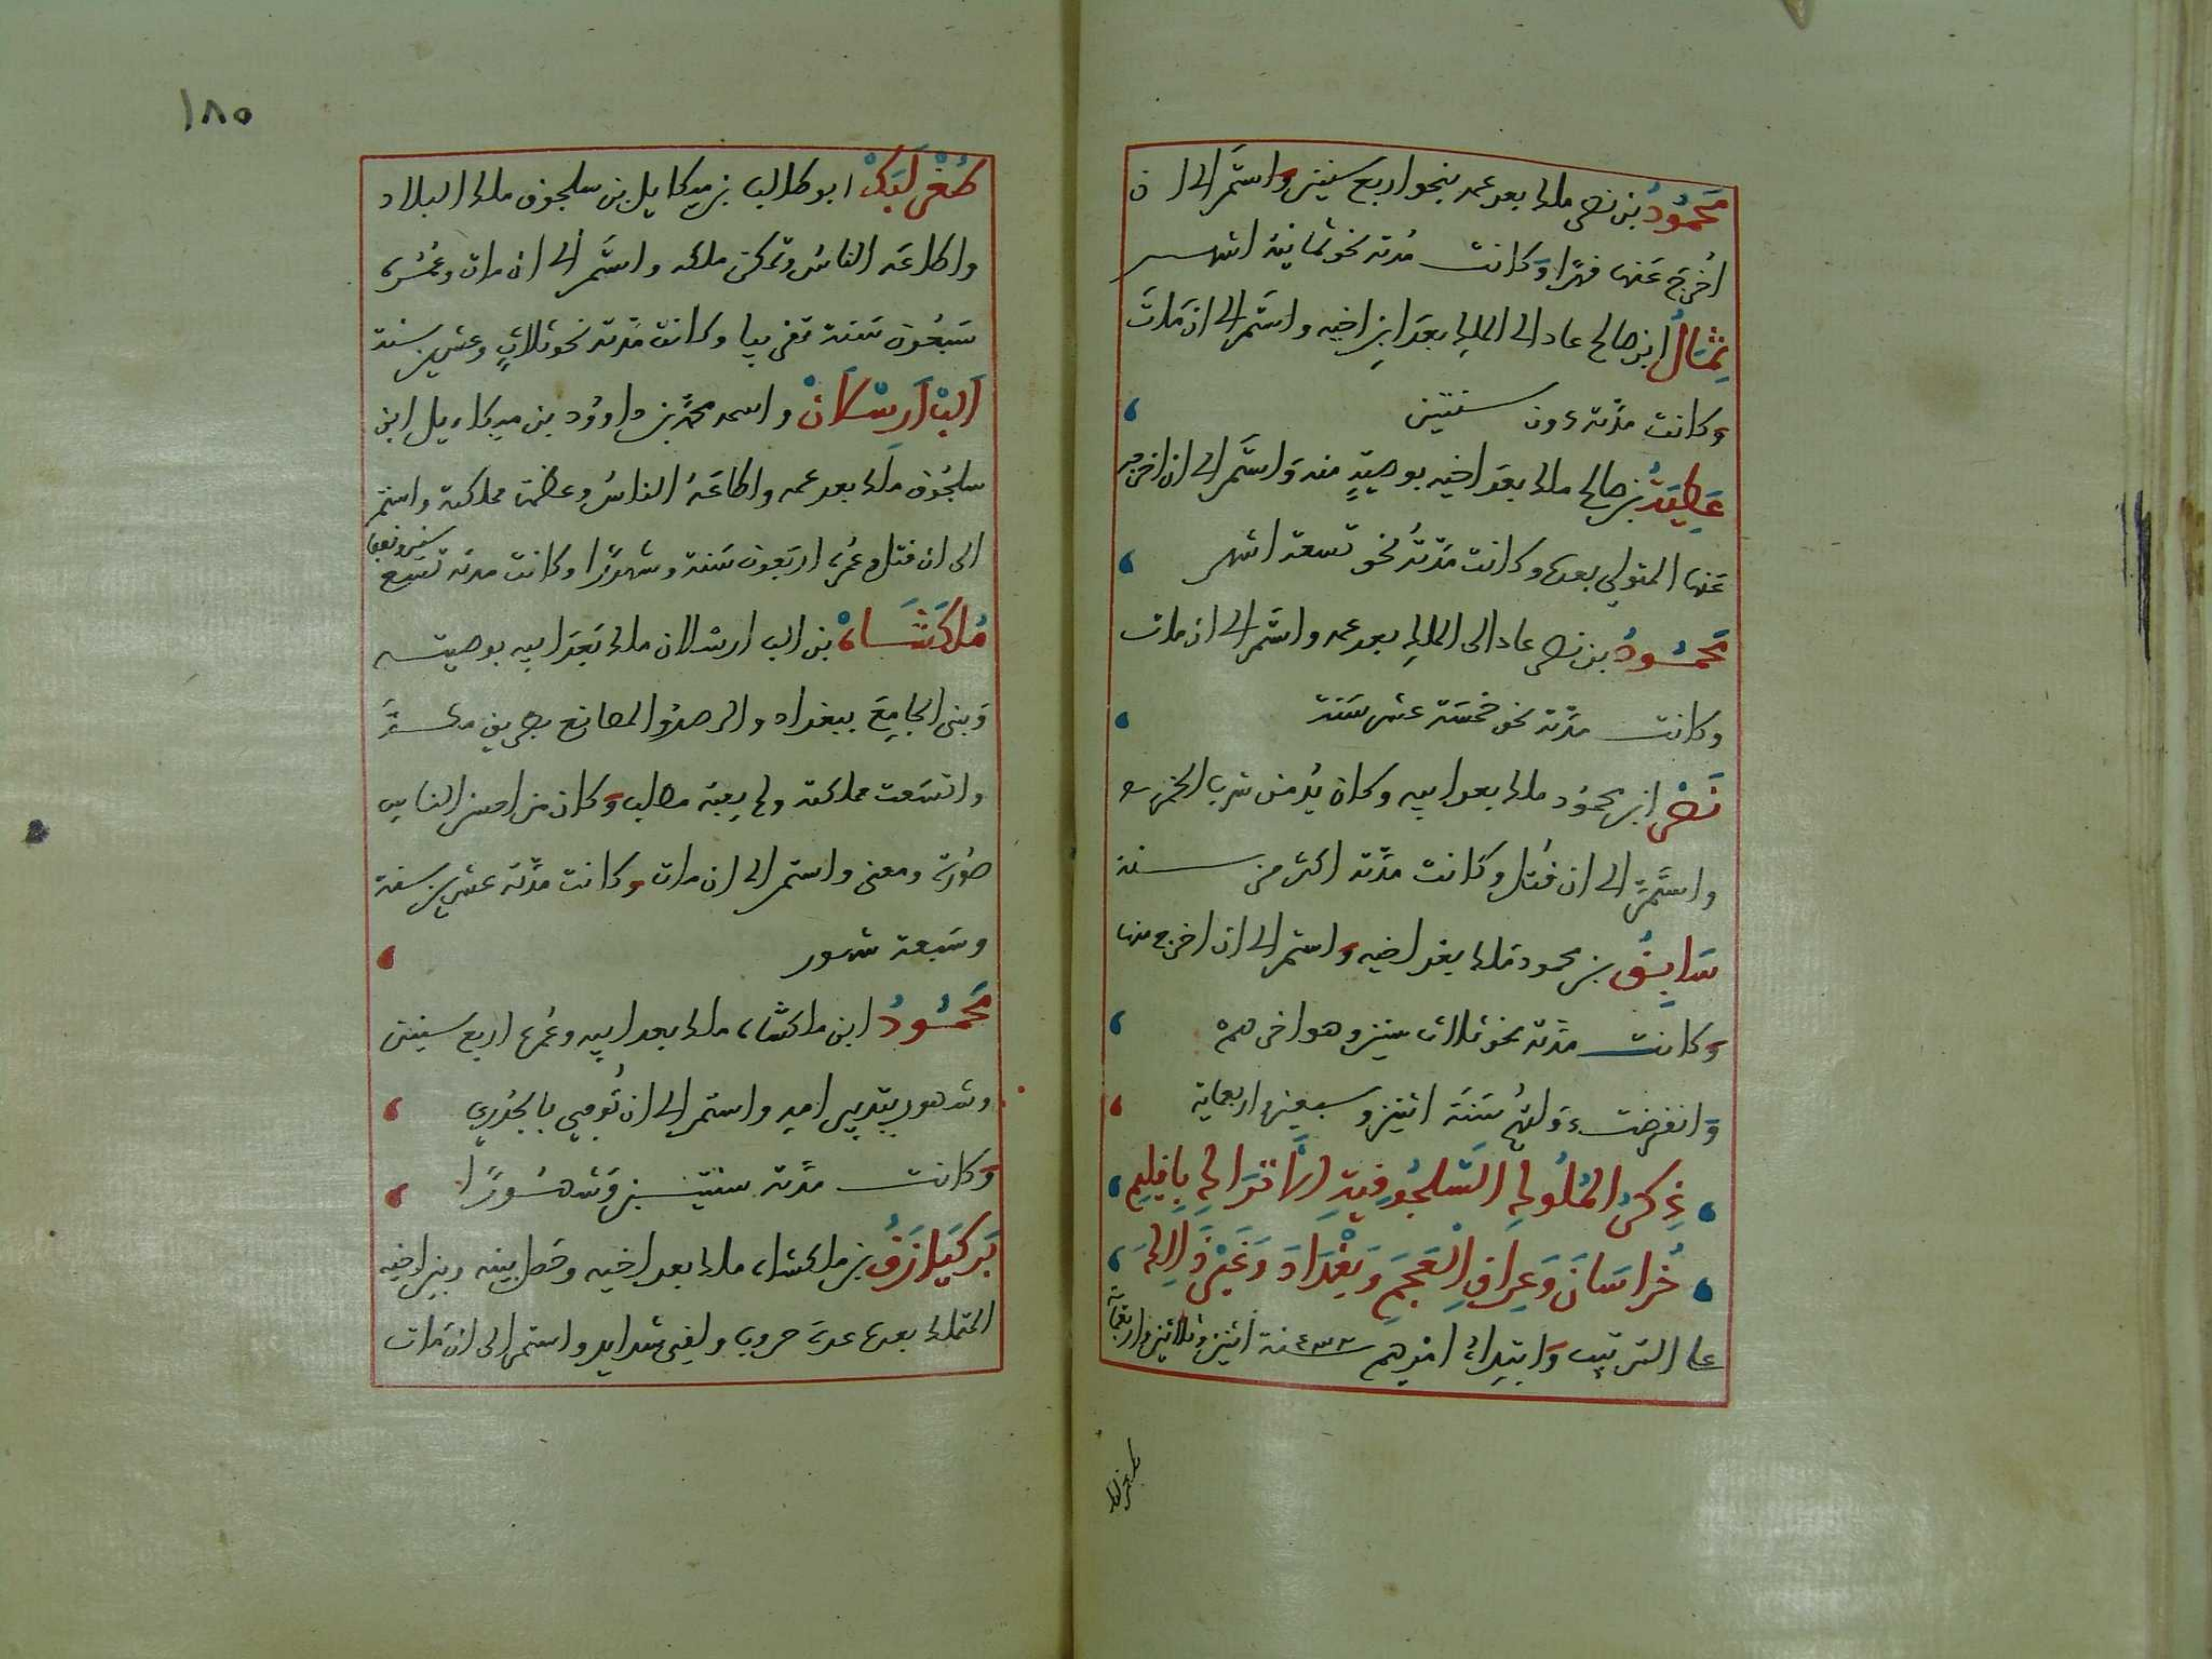 مَحمُودُ بن نصر ملك بعد عمه بنحو اربع سنين واستمَر الى ان
اُخرِجَ عَنها قهرًا وَكانت مُدته نحو ثمانية اشهر
ثِمَالُ ابن صالح عاد الى الملك بعدَ ابنِ اخيه واستَمر الى ان مَاتَ
وكانت مدَّته دون سنتين
عَطِيَّةُ بن صالح ملك بعدَ اخيه بوصيّةٍ منه وَاستَمر الى ان اخرجه
عَنها المتولي بعده وكانت مدَّتهُ نحو تسعة اشهر
مَحمُودُ بن نصر عاد الى الملكِ بعد عمه واستَمر الى ان مات
وكانت مدَّته نحو خمسَة عشر سَنة
نَصْر ابن محمُود ملك بعد ابيه وكان يُدمن شرب الخمر
واستَمَرَّ الى ان قُتل وكانت مدَّته اكثر من سنة
سَابِقُ بن محمود ملك بعد اخيه واستمر الى ان اخرج منها
وَكانت مدَّته نحو ثلاث سنين وهو اخرهم
وَانقرضت دَولتهُم سَنَة اثنين وسبعين واربعماية
ذِكرُ المُلُوكِ السَّلجُوقِيَّةِ الأَترَاكِ بِاِقلِيمِ
خُراسَانَ وَعِراقِ الْعَجَمِ وَبَغْدَادَ وَغَيْرِ ذَالِكَ
على الترتيب وَابتِداءُ امرهم سنة ٤٣٢ اثنين وثلاثين واربعماية
طغرلبك
١٨٥
طُغْرِلبَكْ ابو طالب بن ميكاييل بن سلجوق ملك البلاد
واطاعَه الناسُ وتمكن ملكه واستَمر الى ان مات وعمُره
سَبعُون سَنة تقريبا وكانت مدَّته نحو ثلاثٍ وعشرين سنة
اَلبْ اَرِسْلَانْ واسمه محمَّد بن داوُود بن ميكاييل ابن
سلجُوق ملك بعد عمه واطاعَهُ الناسُ وعظمت مملكته واستمر
الى ان قتل وعُمره اربَعون سَنة وشهُورًا وكانت مدته تسع سنين ونصفا
مُلكَشَاهْ بن الب ارسلان ملك بَعدَ ابيه بوصيته
وَبنى الجامِعَ ببغداد والرصدُ والمصانع بطريق مكَّة
واتسَعت مملكته ولم يفته مطلب وَكان من احسن الناس
صُورة ومعنى واستمر الى ان مات وكانت مدَّته عشرين سنة
وسَبعة شهور
مَحمُودُ ابن ملكشاه ملك بعد ابيه وعُمره اربع سنين
وشهور بتدبير امه واستمر الى ان تُوفي بالجُدرِي
وَكانت مدَّته سنتين وَشهُورًا
بَركيَارَقُ بن ملكشاه ملك بعد اخيه وحصل بينه وبين اخيه
المتملك بعده عدة حروب ولقى شدايد واستمر الى ان مَات